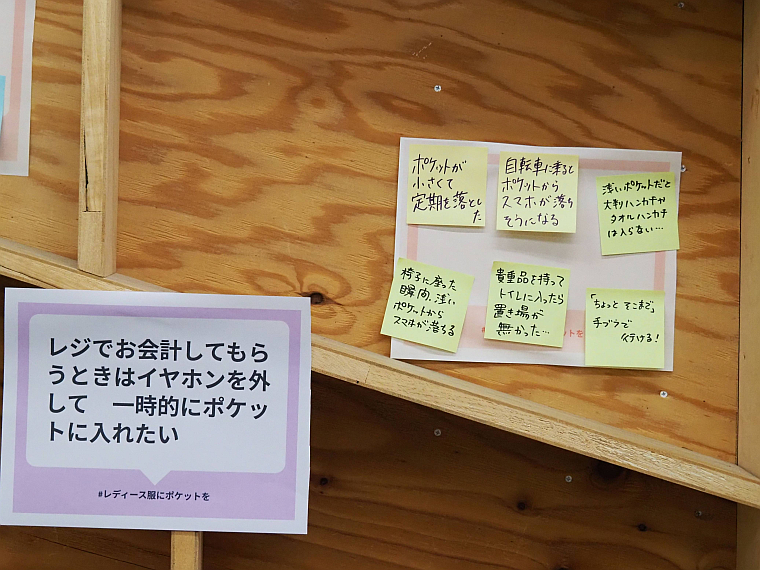 ポケットが
小さくて
定期を落とし
た
自転車に乗ると
ポケットから
スマホが落ち
そうになる
浅いポケットだと
大判ハンカチや
タオルハンカチ
は入らない…
椅子に座った
瞬間、浅い
ポケットから
スマホが落ちる
貴重品を持って
トイレに入ったら
置き場が
無かった…
「ちょっと そこまで」
手ブラで
行ける!
を
レジでお会計してもら
うときはイヤホンを外
して　一時的にポケッ
トに入れたい
#レディース服にポケットを